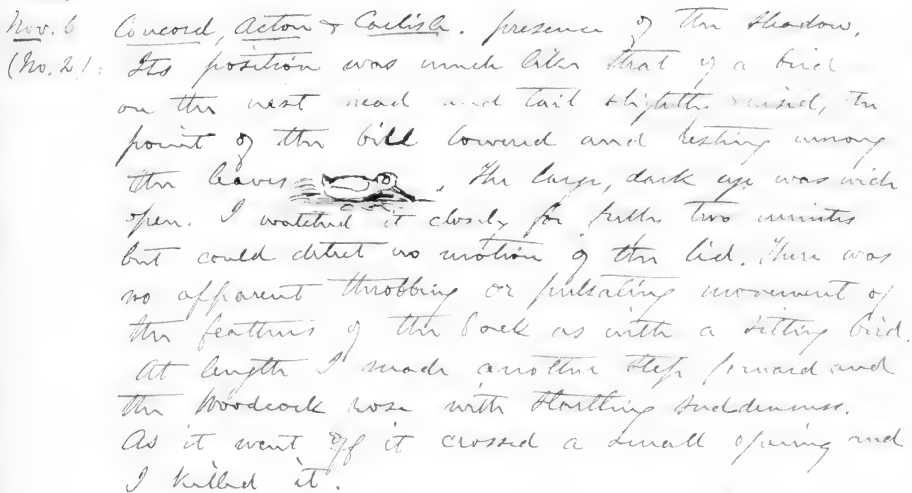 Nov. 6 Concord, Acton & Carlisle. presence of the shadow.
(No. 2). Its position was much like that of a bird
on the nest head and tail slightly raised, the
point of the bill lowered and resting among
the leaves. The large, dark eye was wide
open. I watched it closely for fully two minutes
but could detect no motion of the lid. There was
no apparent throbbing or pulsating movement of
the feathers of the back as with a sitting bird.
At length I made another step forward and
the Woodcock rose with startling suddenness.
As it went off it crossed a small opening and
I killed it.